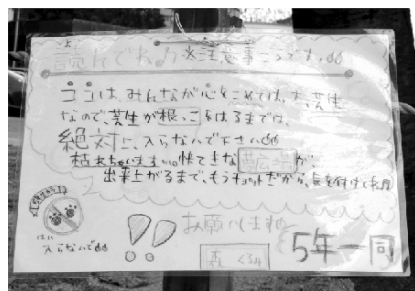 読んでね♪※注意事こうです。
ココは、みんなが心をこめてはった芝生
なので、芝生が根っこをはるまでは、
絶対に、入らないで下さい
枯れちゃいます。快てきな広場が
出来上がるまで、もうチョットだから、気を付けてね
はいらないで
お願いします
!!
5年一同